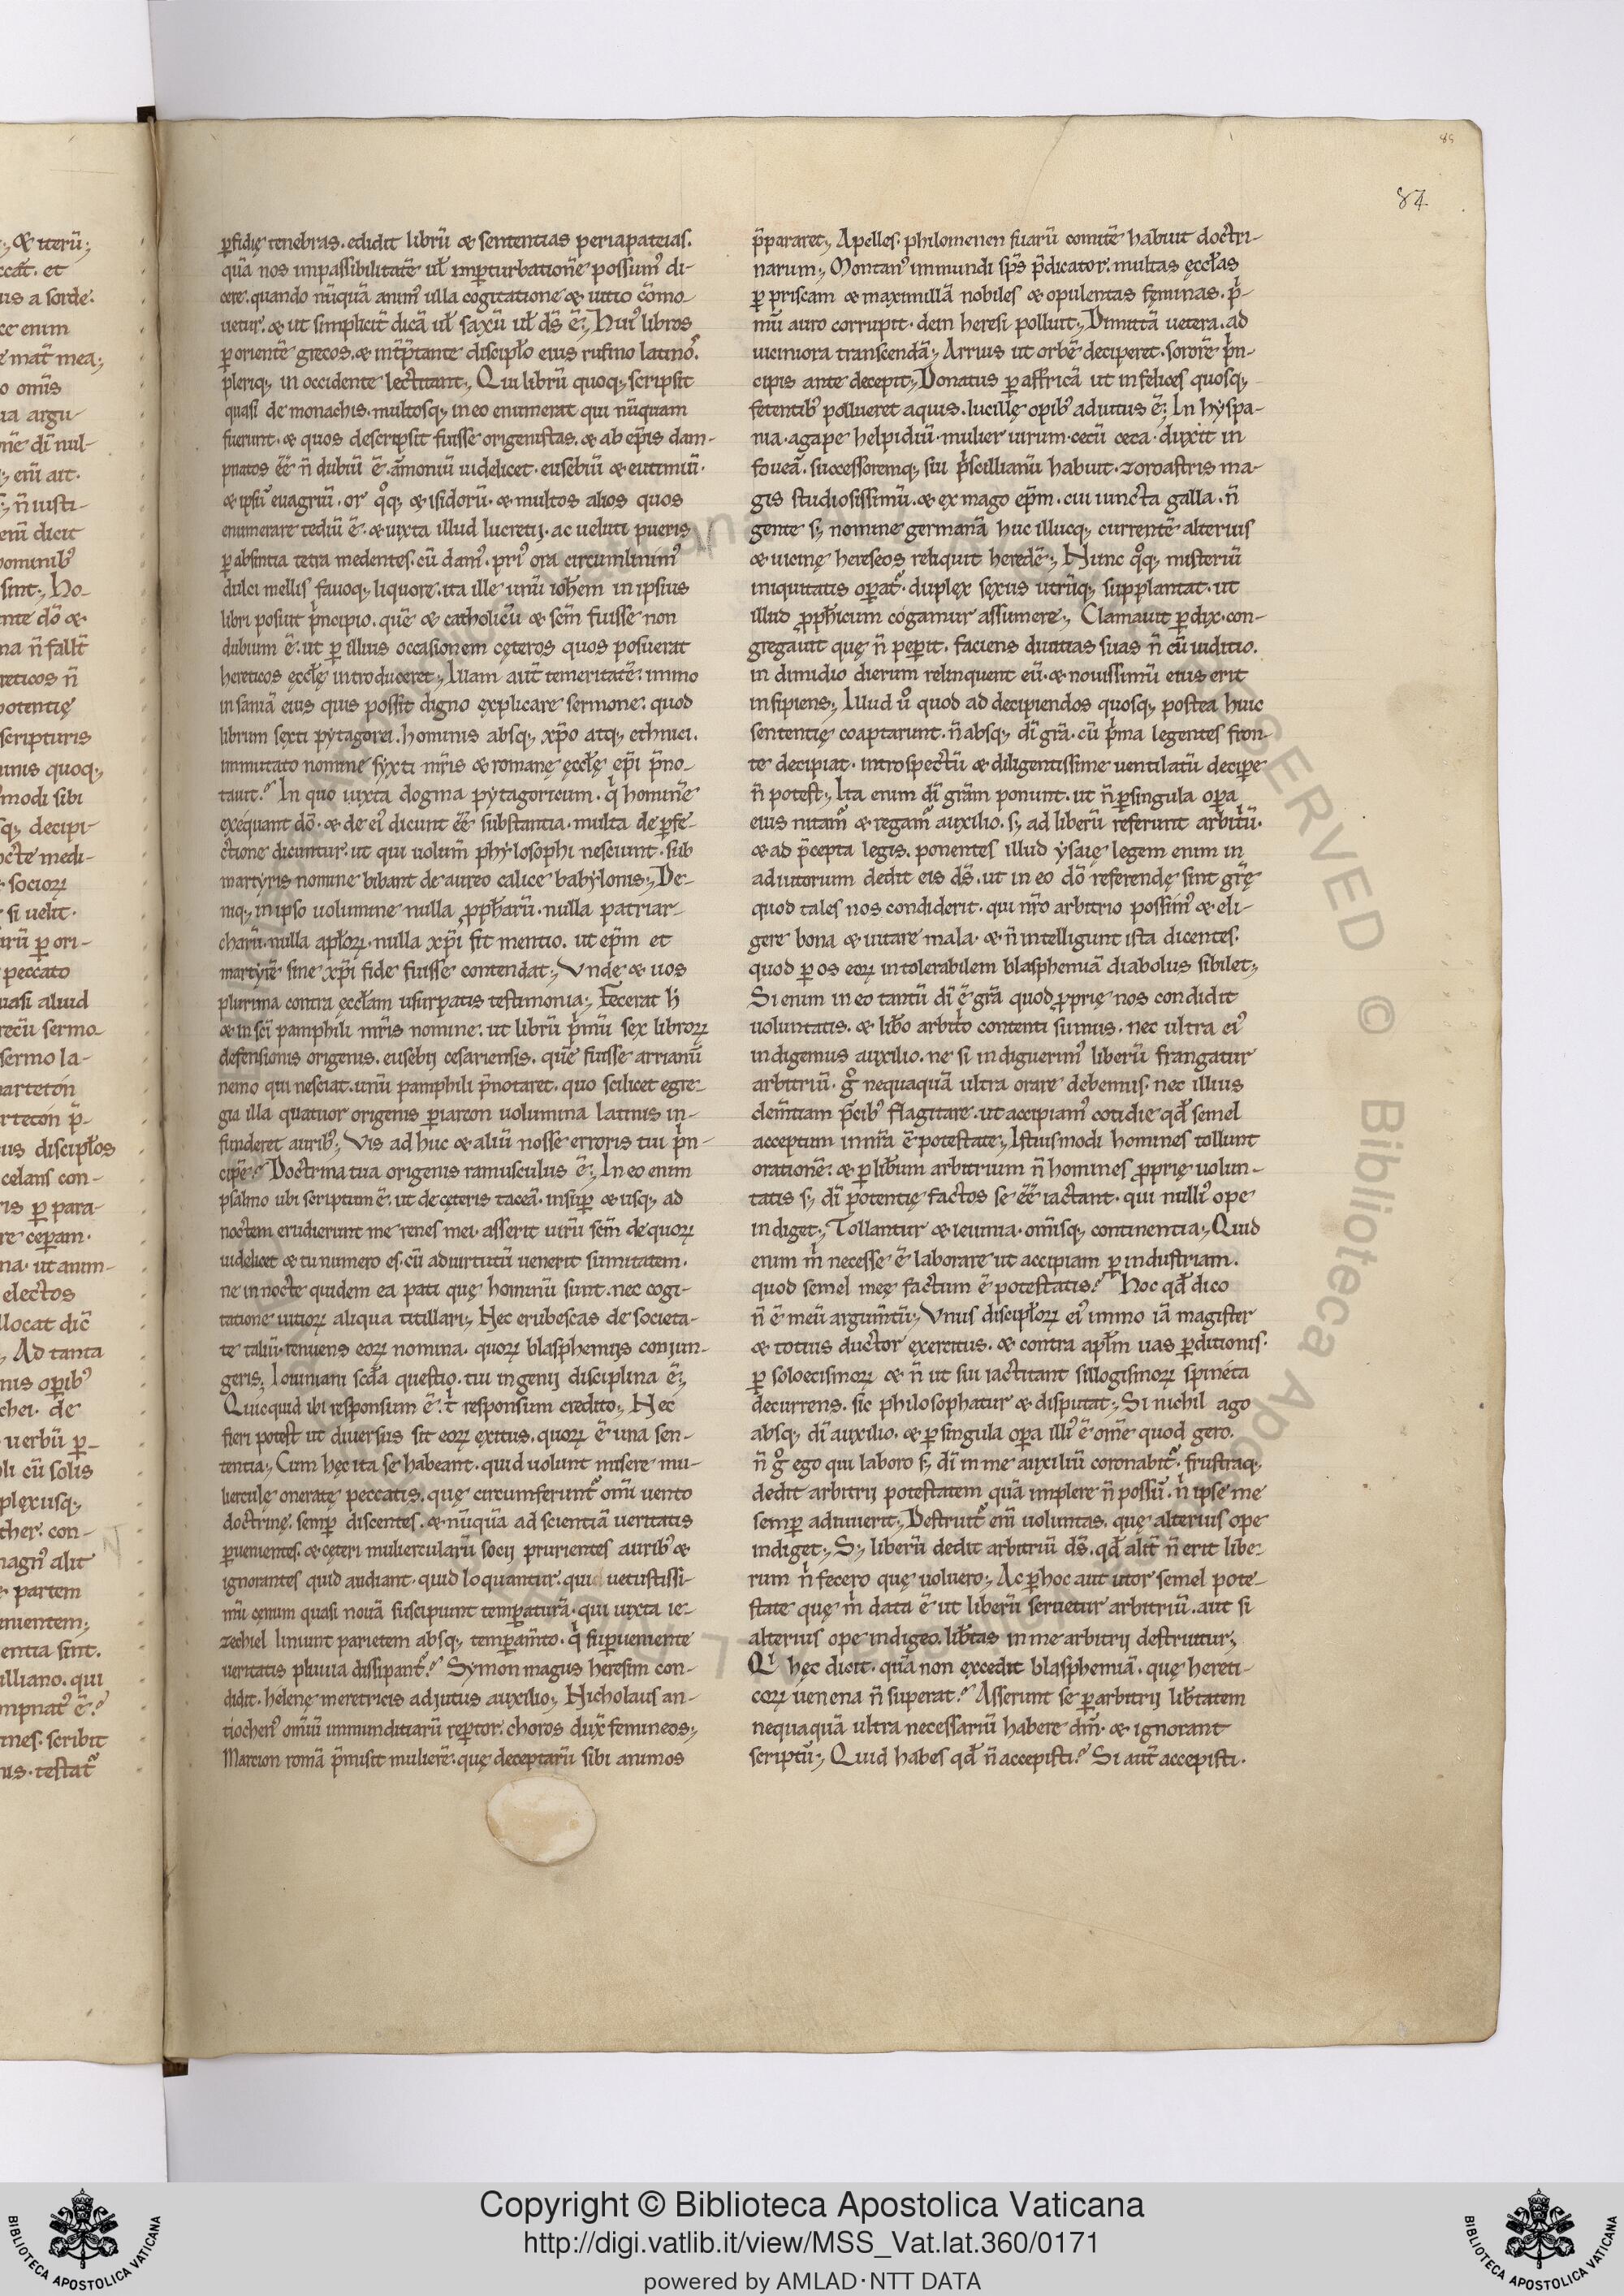 84
p̄fidię tenebras. edidit librū ⁊ sententias periapateias.
quā nos impassibilitatē ul̄ imꝑturbationē possum᾽ di-
cere. quando nūquā anim᾽ ulla cogitatione ⁊ uitio cōmo-
uetur. ⁊ ut simplicit̄ dicā ul̄ saxū ul̄ ds̄ ē; hui᾽ libros
ꝑ orientē grecos. ⁊ int̄p̄tante discipl̄o eius rufino latino᷒.
pleriq; in occidente lectitant; Qui librū quoq; scripsit
quasi de monachis. multosq; in eo enumerat qui nūquam
fuerunt. ⁊ quos descripsit fuisse origenistas. ⁊ ab ep̄is dam-
pnatos ēē n̄ dubiū ē. āmoniū uidelicet. eusebiū ⁊ eutimiū.
⁊ ipsū euagriū. or qͦq; ⁊ isidorū. ⁊ multos alios quos
enumerare tediū ē. ⁊ iuxta illud lucretij. ac ueluti pueris
ꝑ absintia tetra medentes. cū dam᾽. pri᾽ ora circumlinim᾽
dulci mellis fauoq; liquore. ita ille unū ioh̄em in ipsius
libri posuit pͥncipio. quē ⁊ catholicū ⁊ scm̄ fuisse non
dubium ē. ut ꝑ illius occasionem cęteros quos posuerat
hereticos ęccl̄ę introduceret; Illam aut̄ temeritatē. immo
insaniā eius quis possit digno explicare sermone. quod
librum sexti pytagorei. hominis absq; xp̄o atq; ethnici.
immutato nomine syxti mr̄is ⁊ romanę ęccl̄ę ep̄i p̄no-
tauit? In quo iuxta dogma pytagoricum. qͥ hominē
exequant dō. ⁊ de ei᾽ dicunt ēē substantia. multa de ꝑfe-
ctione dicuntur. ut qui uolum̄ phylosophi nesciunt. sub
martyris nomine bibant de aureo calice babylonis; De-
niq; in ipso uolumine nulla ꝓph̄arū. nulla patriar-
charū. nulla apl̄oꝝ. nulla xp̄i fit mentio. ut ep̄m et
martyrē sine xp̄i fide fuisse contendat; Vnde ⁊ uos
plurima contra ęccl̄am usurpatis testimonia; Fecerat h̄
⁊ in sc̄i pamphili mr̄is nomine. ut librū pͥmū sex libroꝝ
defensionis origenis. eusebij cesariensis. quē fuisse arrianū
nemo qui nesciat. unū pamphili p̄notaret. quo scilicet egre-
gia illa quatuor origenis periarcon uolumina latinis in-
funderet aurib᾽; Vis ad huc ⁊ aliū nosse erroris tui pͥn-
cipē? Doctrina tua origenis ramusculus ē; In eo enim
psalmo ubi scriptum ē. ut de cęteris taceā. insuꝑ ⁊ usq; ad
noctem erudierunt me renes mei. asserit uirū scm̄ de quoꝝ
uidelicet ⁊ tu numero es. cū ad uirtutū uenerit sumitatem.
ne in nocte quidem ea pati quę hominū sunt. nec cogi-
tatione uitioꝝ aliqua titillari; Hec erubescas de societa-
te taliū. renuens eoꝝ nomina. quoꝝ blasphemijs conjun-
geris; Iouiniani scd̄a questio. tui ingenij disciplina ē;
Quicquid ibi responsum ē. tͥ responsum credito; Nec
fieri potest ut diuersus sit eoꝝ exitus. quoꝝ ē una sen-
tentia; Cum hęc ita se habeant. quid uolunt misere mu-
liercule onerate peccatis. quę circumferunt᷒ om̄i uento
doctrinę. semꝑ discentes. ⁊ nūquā ad scientiā ueritatis
ꝑuenientes. ⁊ cęteri muliercularū socij prurientes aurib᾽ ⁊
ignorantes quid audiant. quid loquantur. qui uetustissi-
mū cęnum quasi nouā suscipiunt temꝑaturā. qui iuxta ie-
zechiel liniunt parietem absq; temꝑam̄to. qͥ suꝑueniente
ueritatis pluuia dissipant᷒? Symon magus heresim con-
didit. helenę meretricis adjutus auxilio; Nicholaus an-
tiochen᾽ om̄iū immunditiarū reꝑtor. choros dux̄ femineos;
Marcion romā p̄misit mulierē. quę deceptarū sibi animos
p̄pararet; Apelles. philomenen suarū comitē habuit doctri-
narum; Montan᾽ immundi sp̄s p̄dicator. multas ęccl̄as
ꝑ priscam ⁊ maximillā nobiles ⁊ opulentas feminas. pͥ-
mū auro corrupit. dein heresi polluit; Dimittā uetera. ad
uiciniora transcendā; Arrius ut orbē deciperet. sororē pͥn-
cipis ante decepit; Donatus ꝑ affricā ut infelices quosq;
fetentib᾽ pollueret aquis. lucillę opib᾽ adiutus ē; In hyspa-
nia. agape helpidiū. mulier uirum. cecū ceca. duxit in
foueā. successoremq; sui pͥscillianū habuit. zoroastris ma-
gis studiosissimū. ⁊ ex mago ep̄m. cui iuncta galla. n̄
gente s; nomine germanā huc illucq; currentē alterius
⁊ uicinę hereseos reliquit heredē; Nunc qͦq; misteriū
iniquitatis oꝑat᷒. duplex sexus utrūq; supplantat. ut
illud ꝓph̄icum cogamur assumere; Clamauit ꝑdix. con-
gregauit quę n̄ peꝑit. faciens diuitias suas n̄ cū iuditio.
in dimidio dierum relinquent eū. ⁊ nouissimū eius erit
insipiens; Illud uͦ quod ad decipiendos quosq; postea huic
sententię coaptarunt. n̄ absq; dī gr̄a. cū pͥma legentes fron-
te decipiat. introspectū ⁊ diligentissime uentilatū deciꝑe
n̄ potest; Ita enim dī gr̄am ponunt. ut n̄ ꝑ singula oꝑa
eius nitam᷒ ⁊ regam᷒ auxilio. s; ad liberū referunt arbitͥū.
⁊ ad p̄cepta legis. ponentes illud ysaię legem enim in
adiutorum dedit eis ds̄. ut in eo dō referendę sint gr̄ę
quod tales nos condiderit. qui nr̄o arbitrio possim᾽ ⁊ eli-
gere bona ⁊ uitare mala. ⁊ n̄ intelligunt ista dicentes.
quod ꝑ os eoꝝ intolerabilem blasphemiā diabolus sibilet;
Si enim in eo tantū dī ē gr̄a quod ꝓprię nos condidit
uoluntatis. ⁊ lib̄o arbitͥo contenti sumus. nec ultra ei᾽
indigemus auxilio. ne si indiguerim᾽ liberū frangatur
arbitriū. gͦ nequaquā ultra orare debemus. nec illius
clem̄tiam p̄cib᾽ flagitare. ut accipiam᾽ cotidie qd̄ semel
acceptum in nr̄a ē potestate; Istiusmodi homines tollunt
orationē. ⁊ ꝑ lib̄um arbitrium n̄ homines ꝓprię uolun-
tatis s; dī potentię factos se ēē iactant. qui nulli᾽ ope
indiget; Tollantur ⁊ ieiunia. om̄isq; continentia; Quid
enim mͥ necesse ē laborare ut accipiam ꝑ industriam.
quod semel meę factum ē potestatis? Hoc qd̄ dico
n̄ ē meū argum̄tū; Vnus discipl̄oꝝ ei᾽ immo iā magister
⁊ totius ductor exercitus. ⁊ contra apl̄m uas ꝑditionis.
ꝑ soloecismoꝝ ⁊ n̄ ut sui iactitant sillogismoꝝ spineta
decurrens. sic philosophatur ⁊ disputat; Si nichil ago
absq; dī auxilio. ⁊ ꝑ singula oꝑa illi᾽ ē om̄e quod gero.
n̄ gͦ ego qui laboro s; dī in me auxiliū coronabit᷒. frustraq;
dedit arbitrij potestatem quā implere n̄ possū. nͥ ipse me
semꝑ adiuuerit; Destruit᷒ em̄ uoluntas. quę alterius ope
indiget; S; liberū dedit arbitriū ds̄. qd̄ alit̄ n̄ erit libe-
rum nͥ fecero quę uoluero; Ac ꝑ hoc aut utor semel pote-
state quę mͥ data ē ut liberū seruetur arbitriū. aut si
alterius ope indigeo. lib̄tas in me arbitrij destruitur;
Qͥ hęc dicit. quā non excedit blasphemiā. quę hereti-
coꝝ uenena n̄ superat? Asserunt se ꝑ arbitrij lib̄tatem
nequaquā ultra necessariū habere dm̄. ⁊ ignorant
scriptū; Quid habes qd̄ n̄ accepisti? Si aut̄ accepisti.
Copyright © Biblioteca Apostolica Vaticana
http://digi.vatlib.it/view/MSS_Vat.lat.360/0171
powered by AMLAD·NTT DATA
BIBLIOTECA APOSTOLICA VATICANA
BIBLIOTECA APOSTOLICA VATICANA